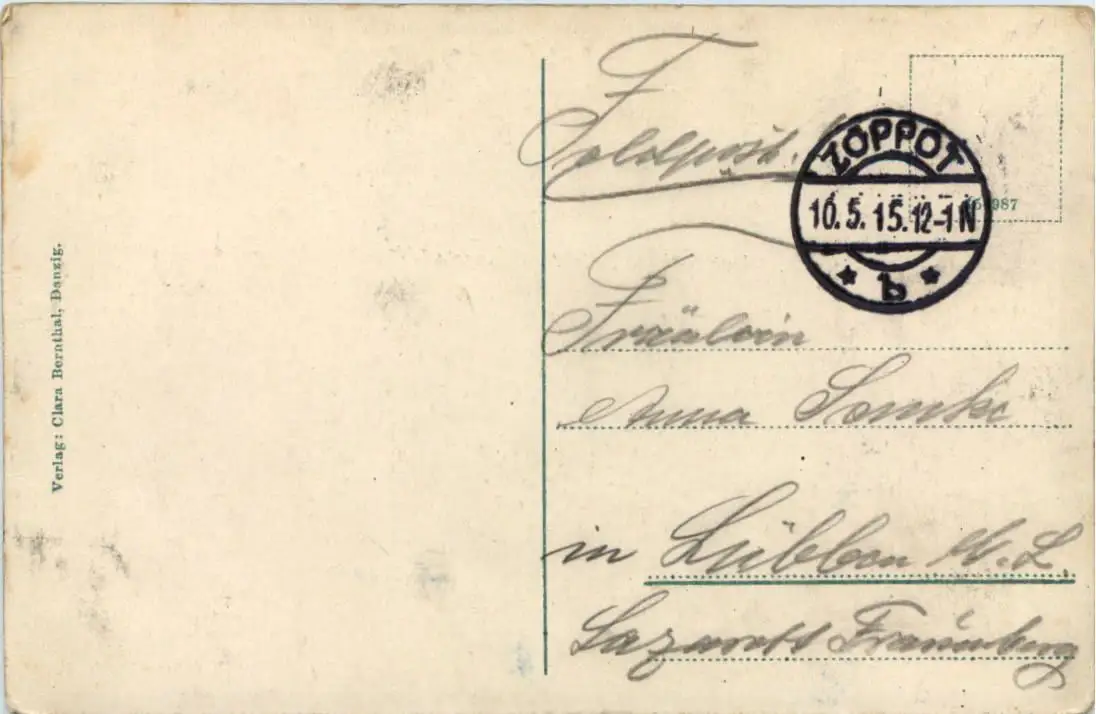 Feldpost.
ZOPPOT
10.5.15.12-1N
* b *
987
Fräulein
Anna
in Lübben N.L.
Lazarett
Verlag: Clara Bernthal, Danzig.